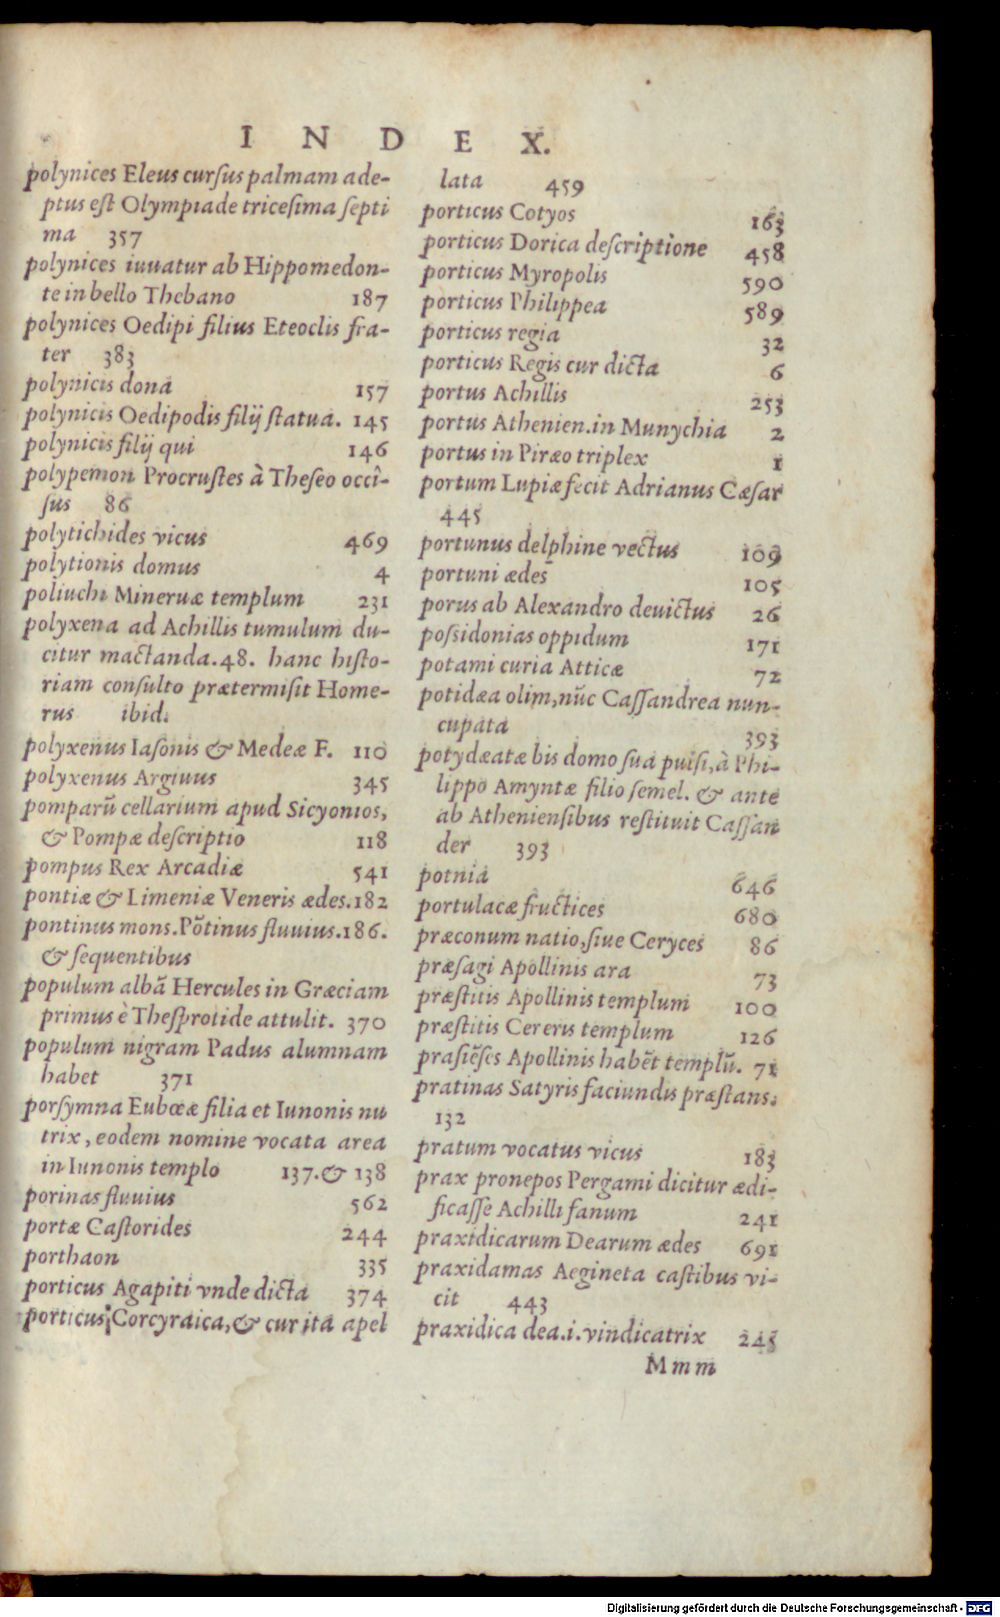 INDEX.
polynices Eleus cursus palmam ade-
ptus est Olympiade tricesima septi
ma 357
polynices iuuatur ab Hippomedon-
te in bello Thebano 187
polynices Oedipi filius Eteoclis fra-
ter 383
polynicis dona 157
polynicis Oedipodis filij statua. 145
polynicis filij qui 146
polypemon Procrustes à Theseo occî-
sus 86
polytichides vicus 469
polytionis domus 4
poliuchi Mineruæ templum 231
polyxena ad Achillis tumulum du-
citur mactanda.48. hanc histo-
riam consulto prætermisit Home-
rus ibid.
polyxenus Iasonis & Medeæ F. 110
polyxenus Argiuus 345
pomparū cellarium apud Sicyonios,
& Pompæ descriptio 118
pompus Rex Arcadiæ 541
pontiæ & Limeniæ Veneris ædes.182
pontinus mons.Pōtinus fluuius.186.
& sequentibus
populum albā Hercules in Græciam
primus è Thesprotide attulit. 370
populum nigram Padus alumnam
habet 371
porsymna Eubœæ filia et Iunonis nu
trix, eodem nomine vocata area
in Iunonis templo 137.& 138
porinas fluuius 562
portæ Castorides 244
porthaon 335
porticus Agapiti vnde dicta 374
porticus Corcyraica,& cur ita apel
lata 459
porticus Cotyos 163
porticus Dorica descriptione 458
porticus Myropolis 590
porticus Philippea 589
porticus regia 32
porticus Regis cur dicta 6
portus Achillis 253
portus Athenien.in Munychia 2
portus in Piræo triplex 1
portum Lupiæ fecit Adrianus Cæsar
445
portunus delphine vectus 109
portuni ædes 105
porus ab Alexandro deuictus 26
possidonias oppidum 171
potami curia Atticæ 72
potidæa olim,nūc Cassandrea nun-
cupata 393
potydæatæ bis domo sua pulsi,à Phi-
lippo Amyntæ filio semel. & ante
ab Atheniensibus restituit Cassan
der 393
potnia 646
portulacæ fructices 680
præconum natio,siue Ceryces 86
præsagi Apollinis ara 73
præstitis Apollinis templum 100
præstitis Cereris templum 126
prasiēses Apollinis habēt templū. 71
pratinas Satyris faciundis præstans.
132
pratum vocatus vicus 183
prax pronepos Pergami dicitur ædi-
ficasse Achilli fanum 241
praxidicarum Dearum ædes 691
praxidamas Aegineta castibus vi-
cit 443
praxidica dea.i.vindicatrix 245
Mmm
Digitalisierung gefördert durch die Deutsche Forschungsgemeinschaft - DFG